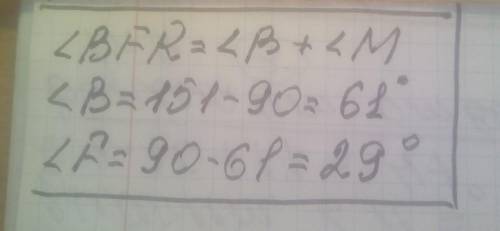 ∠BFR = ∠B + ∠M
∠B = 151 - 90 = 61°
∠F = 90 - 61 = 29°